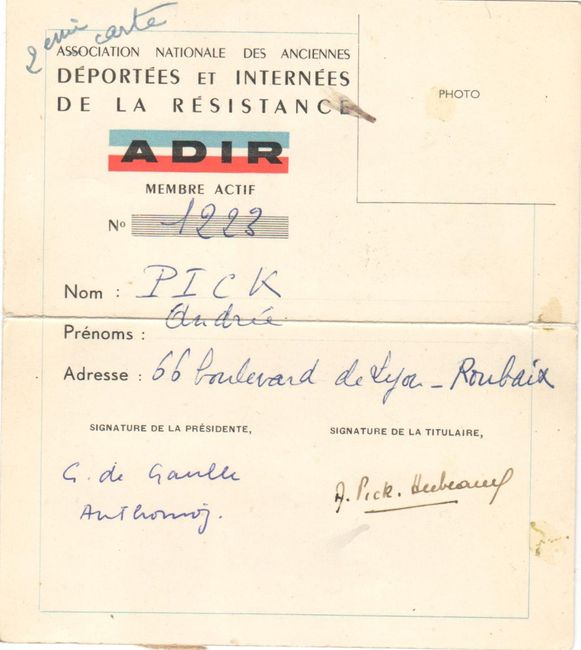 2ème carte
ASSOCIATION NATIONALE DES ANCIENNES
DÉPORTÉES ET INTERNÉES
DE LA RÉSISTANCE
PHOTO
ADIR
MEMBRE ACTIF
No 1223
Nom : PICK
Andrée
Prénoms :
Adresse : 66 boulevard de Lyon - Roubaix
SIGNATURE DE LA PRÉSIDENTE,
SIGNATURE DE LA TITULAIRE,
G. de Gaulle
Anthonioz.
A. Pick.